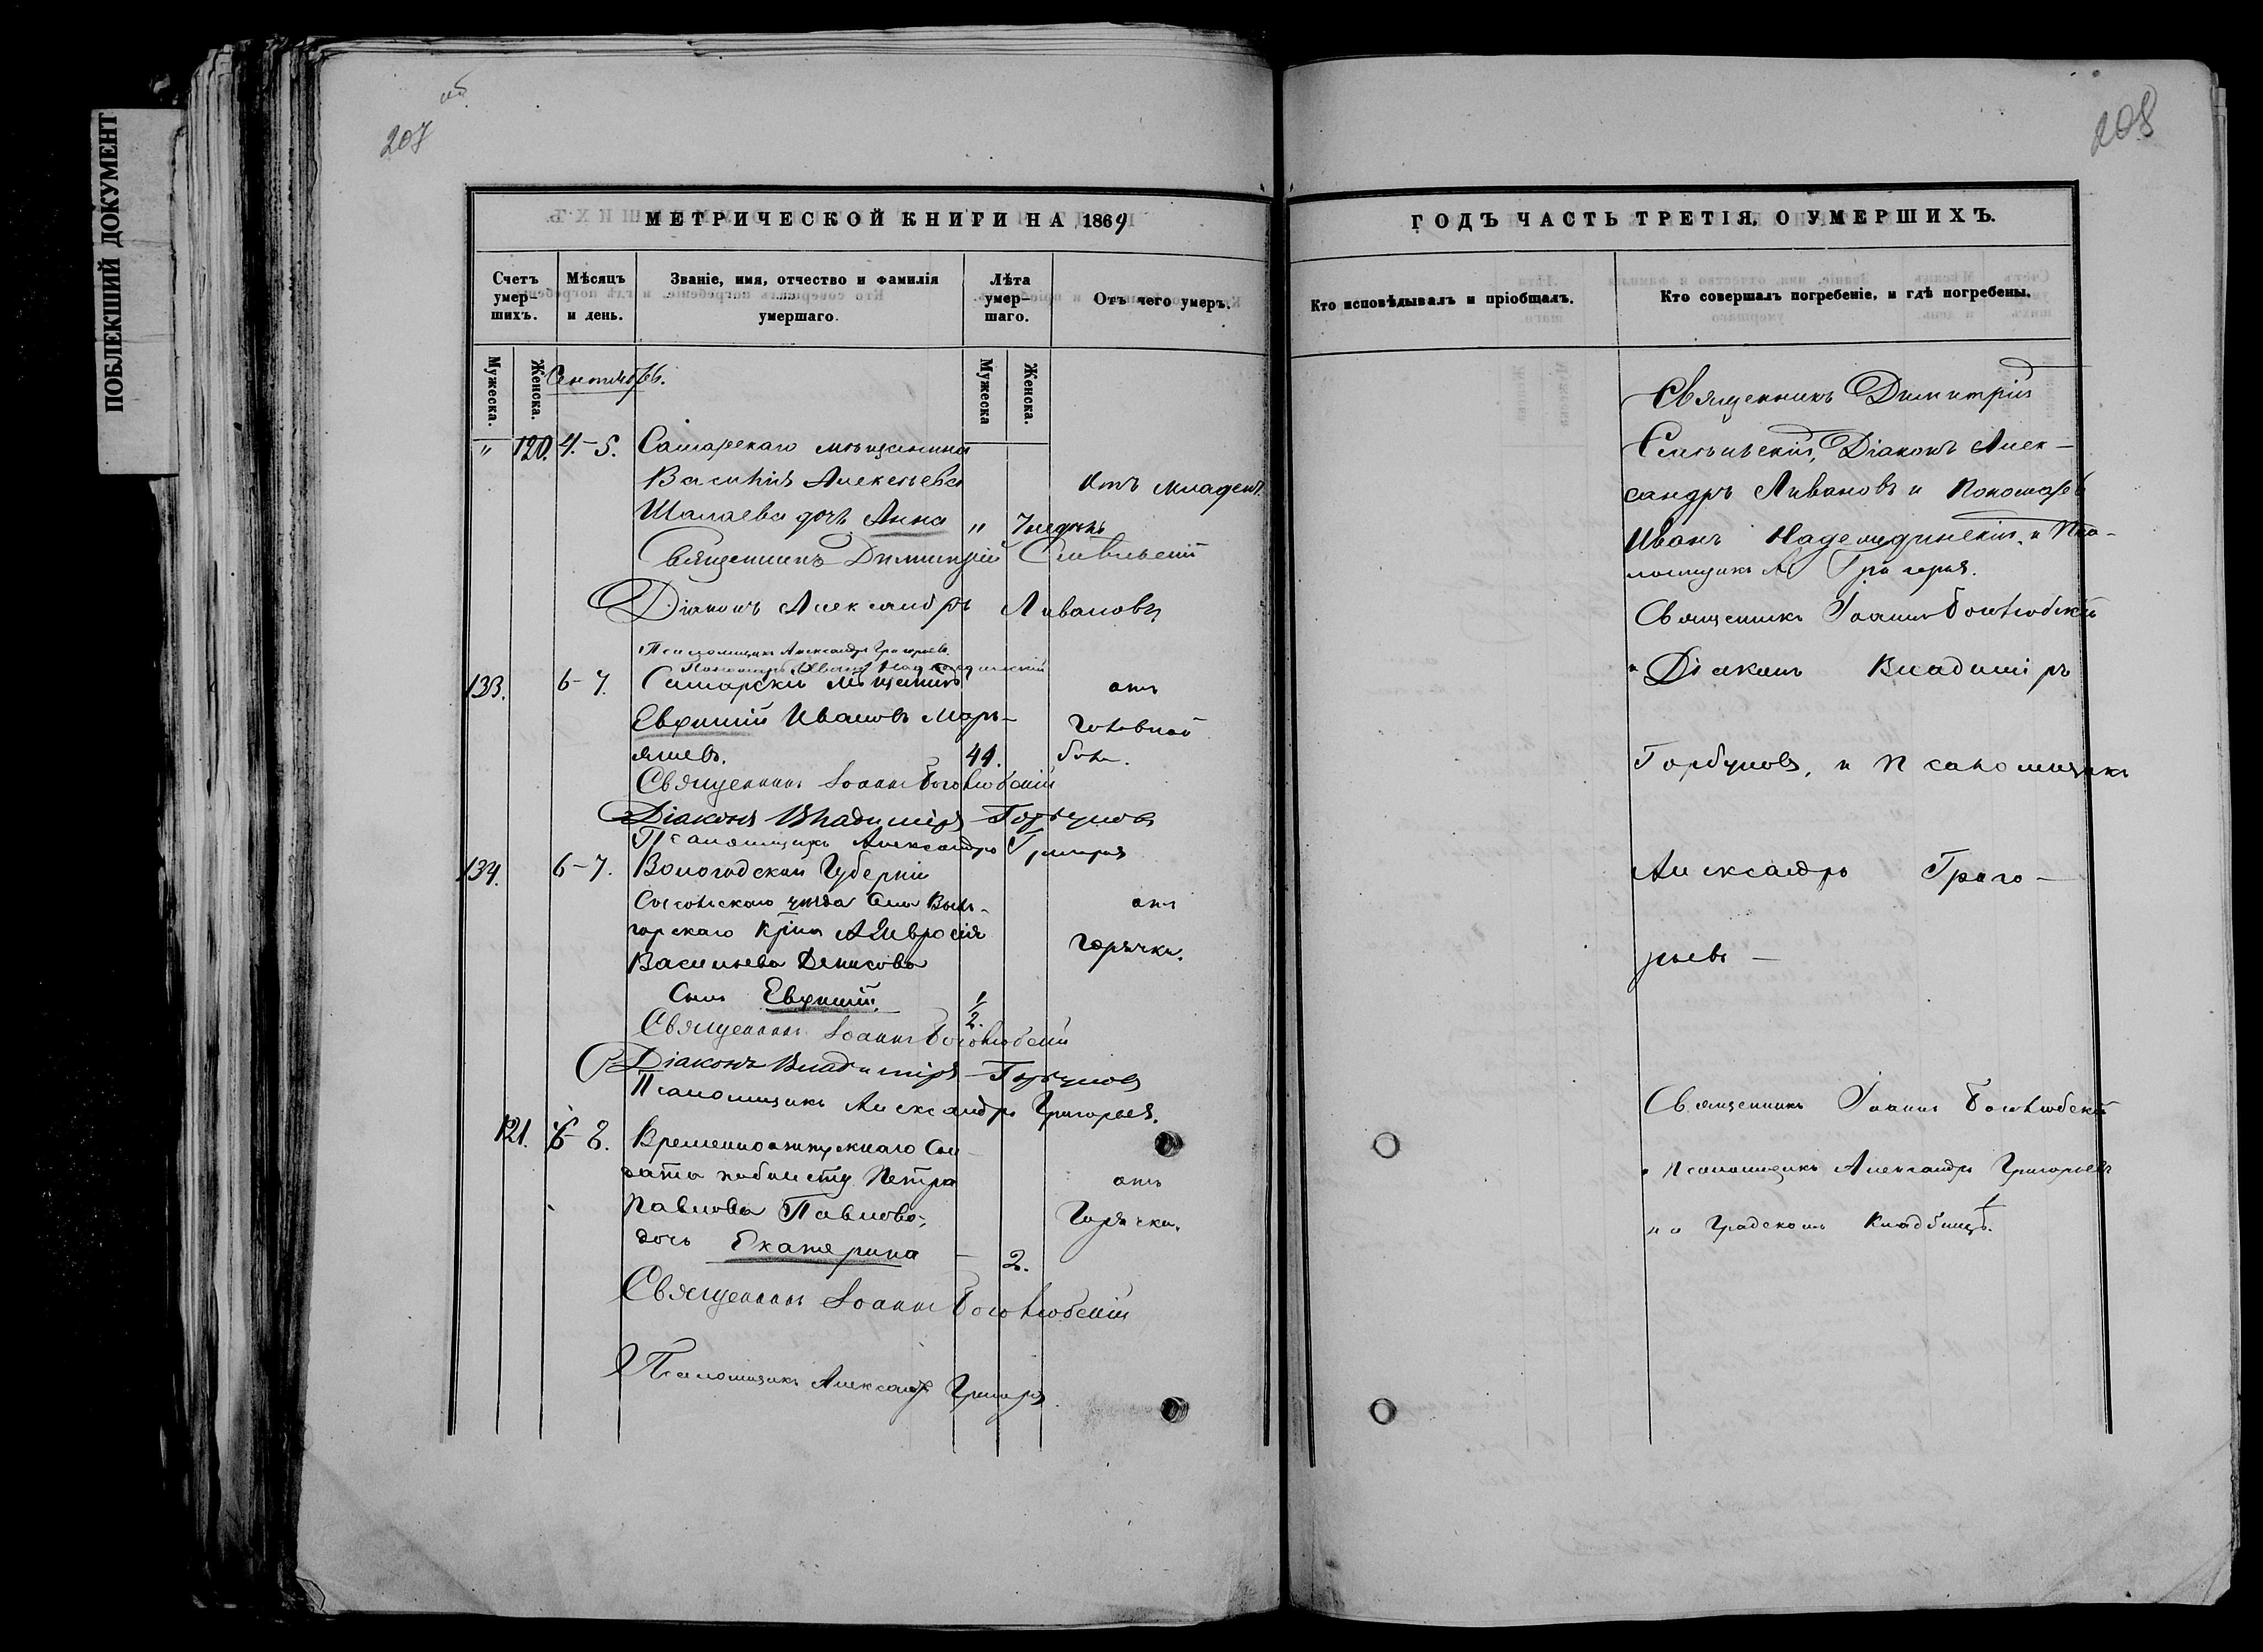 ПОБЛЕКШИЙ ДОКУМЕНТ
об.
207
МЕТРИЧЕСКОЙ КНИГИ НА 1869
Счетъ умер-шихъ.
Мѣсяцъ и день.
Званіе, имя, отчество и фамилія умершаго.
Лѣта умер-шаго.
Отъ чего умеръ.
Мужеска.
Женска.
Мужеска
Женска.
Сентябрь.
" 120. 4-5. Самарскаго мѣщанина
Василія Алексѣева
Отъ младен.
Шалаева дочь Анна " 7 недѣль
Священникъ Димитрій
Діаконъ Александръ Ливановъ
Псаломщикъ Александръ Григорьевъ
Пономарь Иванъ Надеждинскій
133. 6-7. Самарскій мѣщанинъ
отъ
Евѳимій Ивановъ Марь-
головной
яшевъ. 44. боли.
Священникъ Іоаннъ Боголюбскій
Діаконъ Владиміръ Горбуновъ
Псаломщикъ Александръ Григорьев
134. 6-7. Вологодской Губерніи
Сысольскаго уѣзда Села Выль-
отъ
горскаго Кр-на Амвросія
горячки.
Васильева Денисова
Сынъ Евѳимій. 1/2.
Священникъ Іоаннъ Боголюбскій
Діаконъ Владиміръ Горбуновъ
Псаломщикъ Александръ Григорьев.
121. 6-8. Временноотпускнаго Сол-
дата по билету Петра
отъ
Павлова Павлова,
Горячки.
дочь Екатерина - 2.
Священникъ Іоаннъ Боголюбскій
Псаломщикъ Александръ Григорьев
208
ГОДЪ ЧАСТЬ ТРЕТІЯ, О УМЕРШИХЪ.
Кто исповѣдывалъ и пріобщалъ.
Кто совершалъ погребеніе, и гдѣ погребены.
Священникъ Димитрій
Діаконъ Алек-
сандръ Ливановъ и Пономарь
Иванъ Надеждинскій, и Пса-
ломщикъ А. Григорьев.
Священникъ Іоаннъ Боголюбскій
и Діаконъ Владиміръ
Горбуновъ, и Псаломщикъ
Александръ Григо-
рьевъ -
Священникъ Іоаннъ Боголюбскій
и Псаломщикъ Александръ Григорьевъ
на Градскомъ Кладбищѣ.